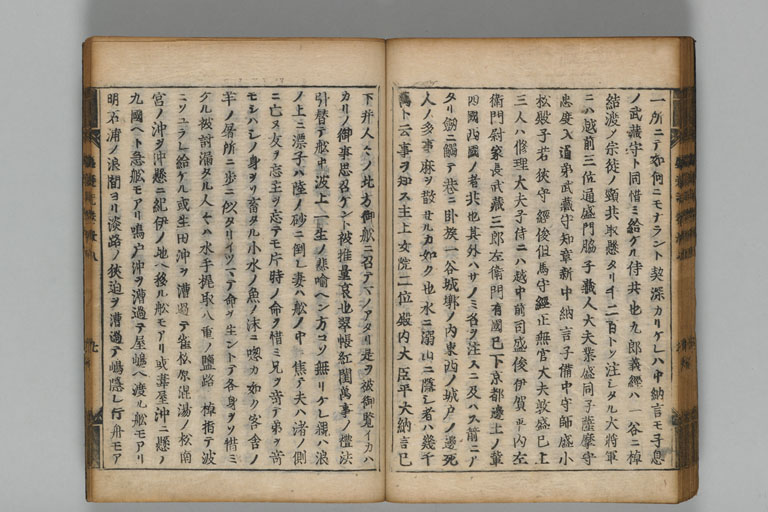 一所ニテ如何ニモナラント契深カリケレハ中納言モ子息
ノ武藏守ト同惜ミ給ケル侍共也九郎義經ハ一谷ニ棹
結渡ノ宗徒ノ頸共取懸タリ千二百トソ注シタル大將軍
ニハ越前三位通盛門脇子藏人大夫業盛同子薩摩守
忠度入道弟武藏守知章新中納言子備中守師盛小
松殿子若狹守經俊但馬守經正無官大夫敦盛已上
三人ハ修理大夫子侍ニハ越中前司盛俊伊賀平内左
衛門尉家長武藏三郎左衛門有國已下京都邊土ノ輩
四國西國ノ者共也其外ハサノミ名ヲ注ニ及ハス前ニア
タリ劔ニ觸テ巷ニ卧族一谷城墎ノ内東西ノ城戸ノ邊死
人ノ多事麻ヲ散セルカ如ク也水ニ溺山ニ隱シ者ハ幾千
萬ト云事ヲ知ス主上女院二位殿内大臣平大納言已
下并人々ノ北方御舩ニ召テマノアタリ是ヲ被御覧イカハ
カリノ御事思召ケント被推量哀也翠帳紅閨萬事ノ禮法
引替テ舩中波上一生ノ悲喩ヘン方コソ無リケレ親ハ浪
ノ上ニ漂子ハ陸ノ砂ニ倒レ妻ハ舩ノ中ニ焦テ夫ハ渚ノ側
ニ亡ヌ友ヲ忘主ヲ忘テモ片時ノ命ヲ惜ミ兄ヲ弃テ弟ヲ弃
モシハシノ身ヲソ畜タル小水ノ魚ノ沫ニ喣カ如ク客舎ノ
羊ノ屠所ニ歩ニ似タリイツマテ命ヲ生ントテ各身ヲソ惜ミ
ケル被討漏タル人々ハ水手梶取八重ノ鹽路ニ棹指テ波
ニソユラレ給ケル或生田沖ヲ漕過テ雀松原混湯ノ松南
宮ノ沖ヲ沖懸ニ紀伊ノ地ヘ移ル舩モアリ或葦屋沖ニ懸リ
九國ヘト急舩モアリ鳴戸沖ヲ漕過テ屋嶋ヘ渡ル舩モアリ
明石浦ノ浪間ヨリ淡路ノ狹迫ヲ漕過テ嶋隱レ行舟モア